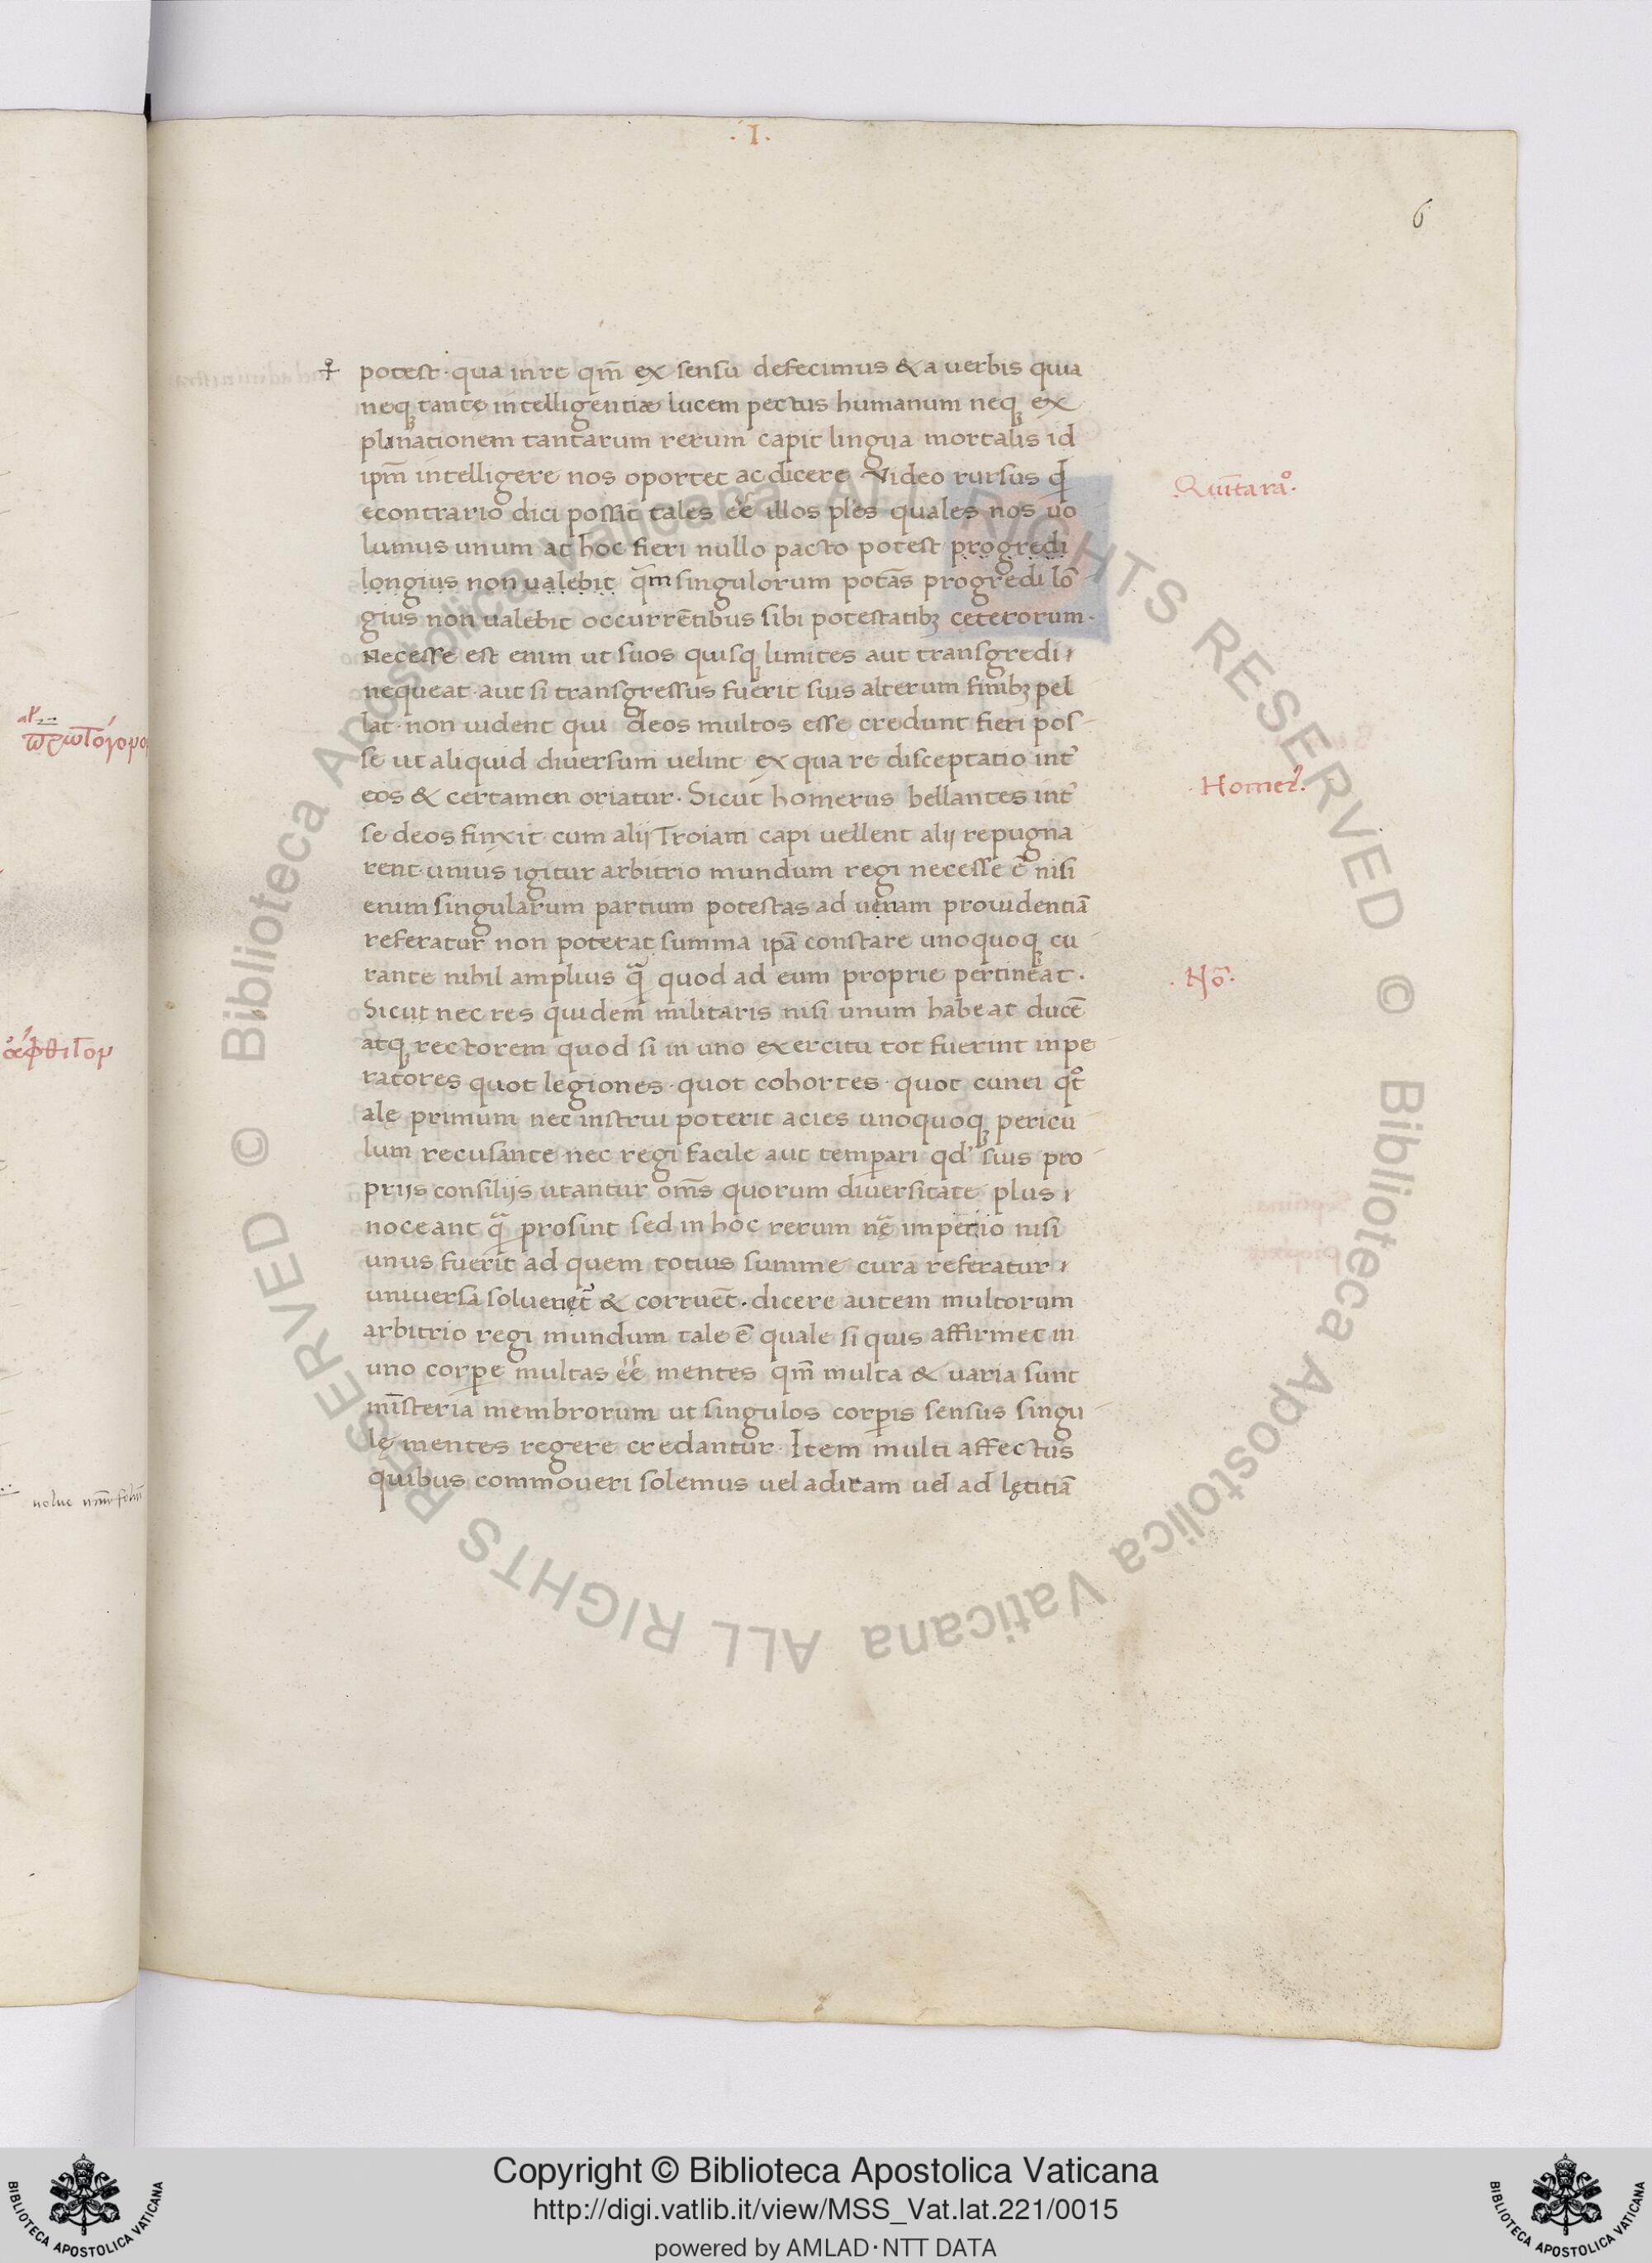 .I.
6
potest · qua in re qm̄ ex sensu defecimus & a uerbis quia
neqꝫ tantę intelligentiæ lucem pectus humanum neqꝫ ex
planationem tantarum rerum capit lingua mortalis id
ipm̄ intelligere nos oportet ac dicere Video rursus qd
Quinta rāo.
econtrario dici possit tales eē illos plēs quales nos uo
lumus unum at hoc fieri nullo pacto potest progredi
longius non ualebit qm̄ singulorum potās progredi lō
gius non ualebit occurrētibus sibi potestatibꝫ ceterorum ·
necesse est enim ut suos quisqꝫ limites aut transgredi
nequeat · aut si transgressus fuerit suis alterum finibꝫ pel
lat · non uident qui deos multos esse credunt fieri pos-
ατ̓...
πρωτόγονο
se ut aliquid diuersum uelint ex qua re disceptatio int̄
eos & certamen oriatur · Sicut homerus bellantes int̄
Homerꝰ.
se deos finxit cum alij Troiam capi uellent alij repugna
rent · unius igitur arbitrio mundum regi necesse ē nisi
enim singularum partium potestas ad unam prouidentiā
referatur non poterat summa ipā constare unoquoqꝫ cu
rante nihil amplius q̄ quod ad eum proprie pertineat ·
Nō.
Sicut nec res quidem militaris nisi unum habeat ducē
atqꝫ rectorem quod si in uno exercitu tot fuerint inpe
ἄφθιτον
ratores quot legiones · quot cohortes · quot cunei qt̊
ale primum nec instrui poterit acies unoquoqꝫ pericu
lum recusante nec regi facile aut temperari qd' suis pro
priis consilijs utantur om̄s quorum diuersitate plus
noceant q̄ prosint sed in hoc rerum nę imperio nisi
unus fuerit ad quem totius summe cura referatur
uniuersa soluenet̄ & corruet̄ · dicere autem multorum
arbitrio regi mundum tale ē quale si quis affirmet in
uno corpe multas eē mentes qm̄ multa & uaria sunt
mīsteria membrorum ut singulos corpis sensus singu
lę mentes regere credantur · Item multi affectus
quibus commoueri solemus uel ad iram uel ad lętitiā
Copyright © Biblioteca Apostolica Vaticana
http://digi.vatlib.it/view/MSS_Vat.lat.221/0015
powered by AMLAD·NTT DATA
BIBLIOTECA APOSTOLICA VATICANA
BIBLIOTECA APOSTOLICA VATICANA
© Biblioteca Apostolica Vaticana ALL RIGHTS RESERVED © Biblioteca Apostolica Vaticana ALL RIGHTS RESERVED